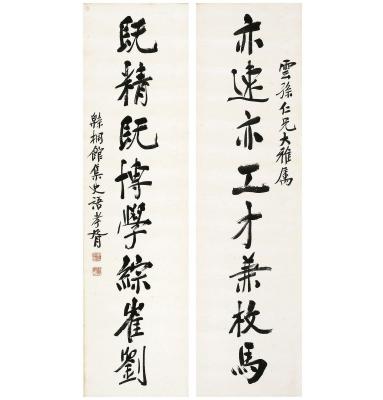 雲孫仁兄大雅属
亦速亦工才兼枚馬
既精既博學綜崔劉
緜桐館集史語孝胥